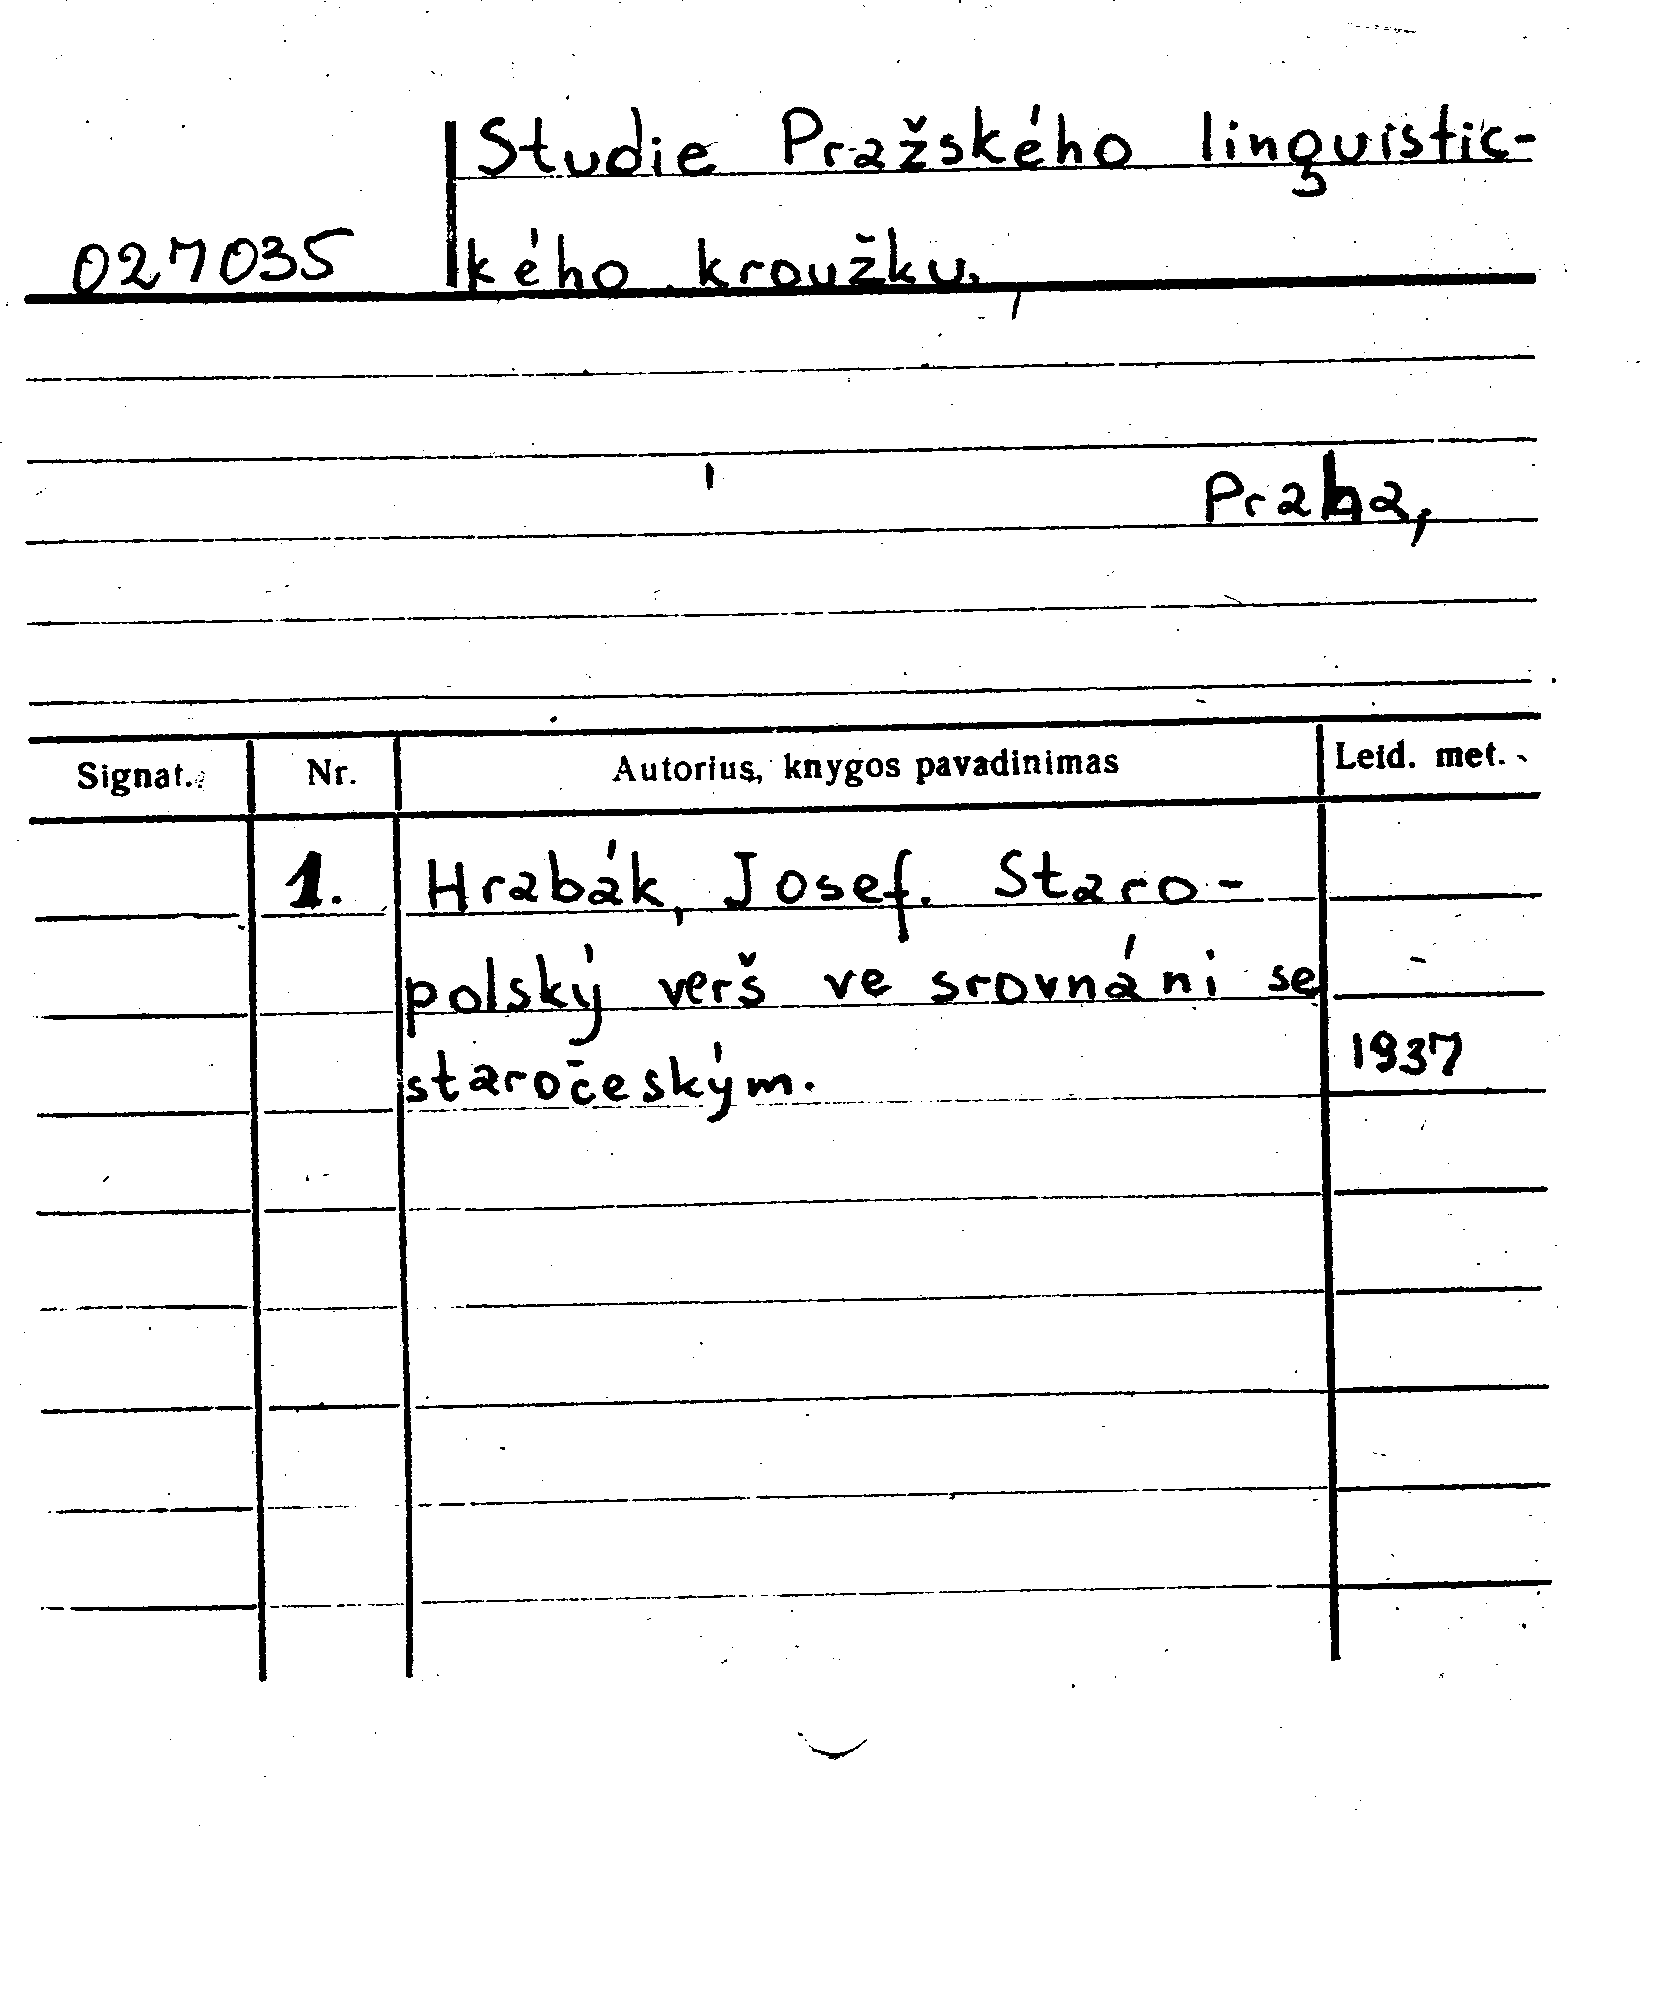 Studie Pražského linguistic-
027035 kého kroužku.
Praha,
Signat. Nr. Autorius, knygos pavadinimas Leid. met.
1. Hrabák, Josef. Staro-
polský verš ve srovnáni se
staročeským. 1937